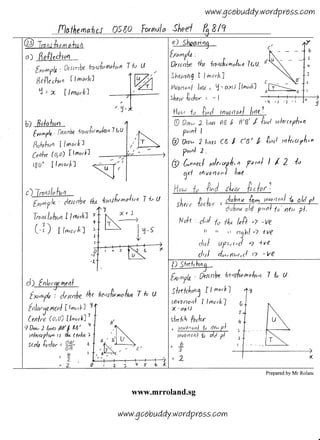 www.gcebuddy.wordpress.com
Mathematics 0580 Formula Sheet Pg 8/9
23 Transformation
a) Reflection
Example: Describe transformation T to U
Reflection [1 mark]
y = x [1 mark]
y = x
b) Rotation
Example: Describe transformation T to U
Rotation [1 mark]
Centre (0,0) [1 mark]
180° [1 mark]
c) Translation
Example: describe the transformation T to U
Translation [1 mark]
[1 mark]
x + 2
y - 5
d) Enlargement
Example: describe the transformation T to U
Enlargement [1 mark]
Centre (0,0) [1 mark]
Draw 2 lines AA' & BB'
intersection is the centre
Scale factor = OB'/OB
e) Shearing
Example
Describe the transformation T to U
Shearing [1 mark]
invariant line, y-axis [1 mark]
Shear factor = -1
How to find invariant line?
① Draw 2 lines AB & A'B' & find interception
point 1
② Draw 2 lines CB & C'B' & find interception
point 2.
③ Connect interception point 1 & 2 to
get invariant line
How to find shear factor?
shear factor = distance from invariant to old pt
distance old point to new pt.
Note dist to the left => -ve
" " " right => +ve
dist upward => +ve
dist downward => -ve
f) Stretching
Example: Describe transformation T to U
Stretching [1 mark]
invariant [1 mark]
x-axis
stretch factor
= invariant to new pt
invariant to old pt
= 2
Prepared by Mr Rolans
www.mrroland.sg
www.gcebuddy.wordpress.com